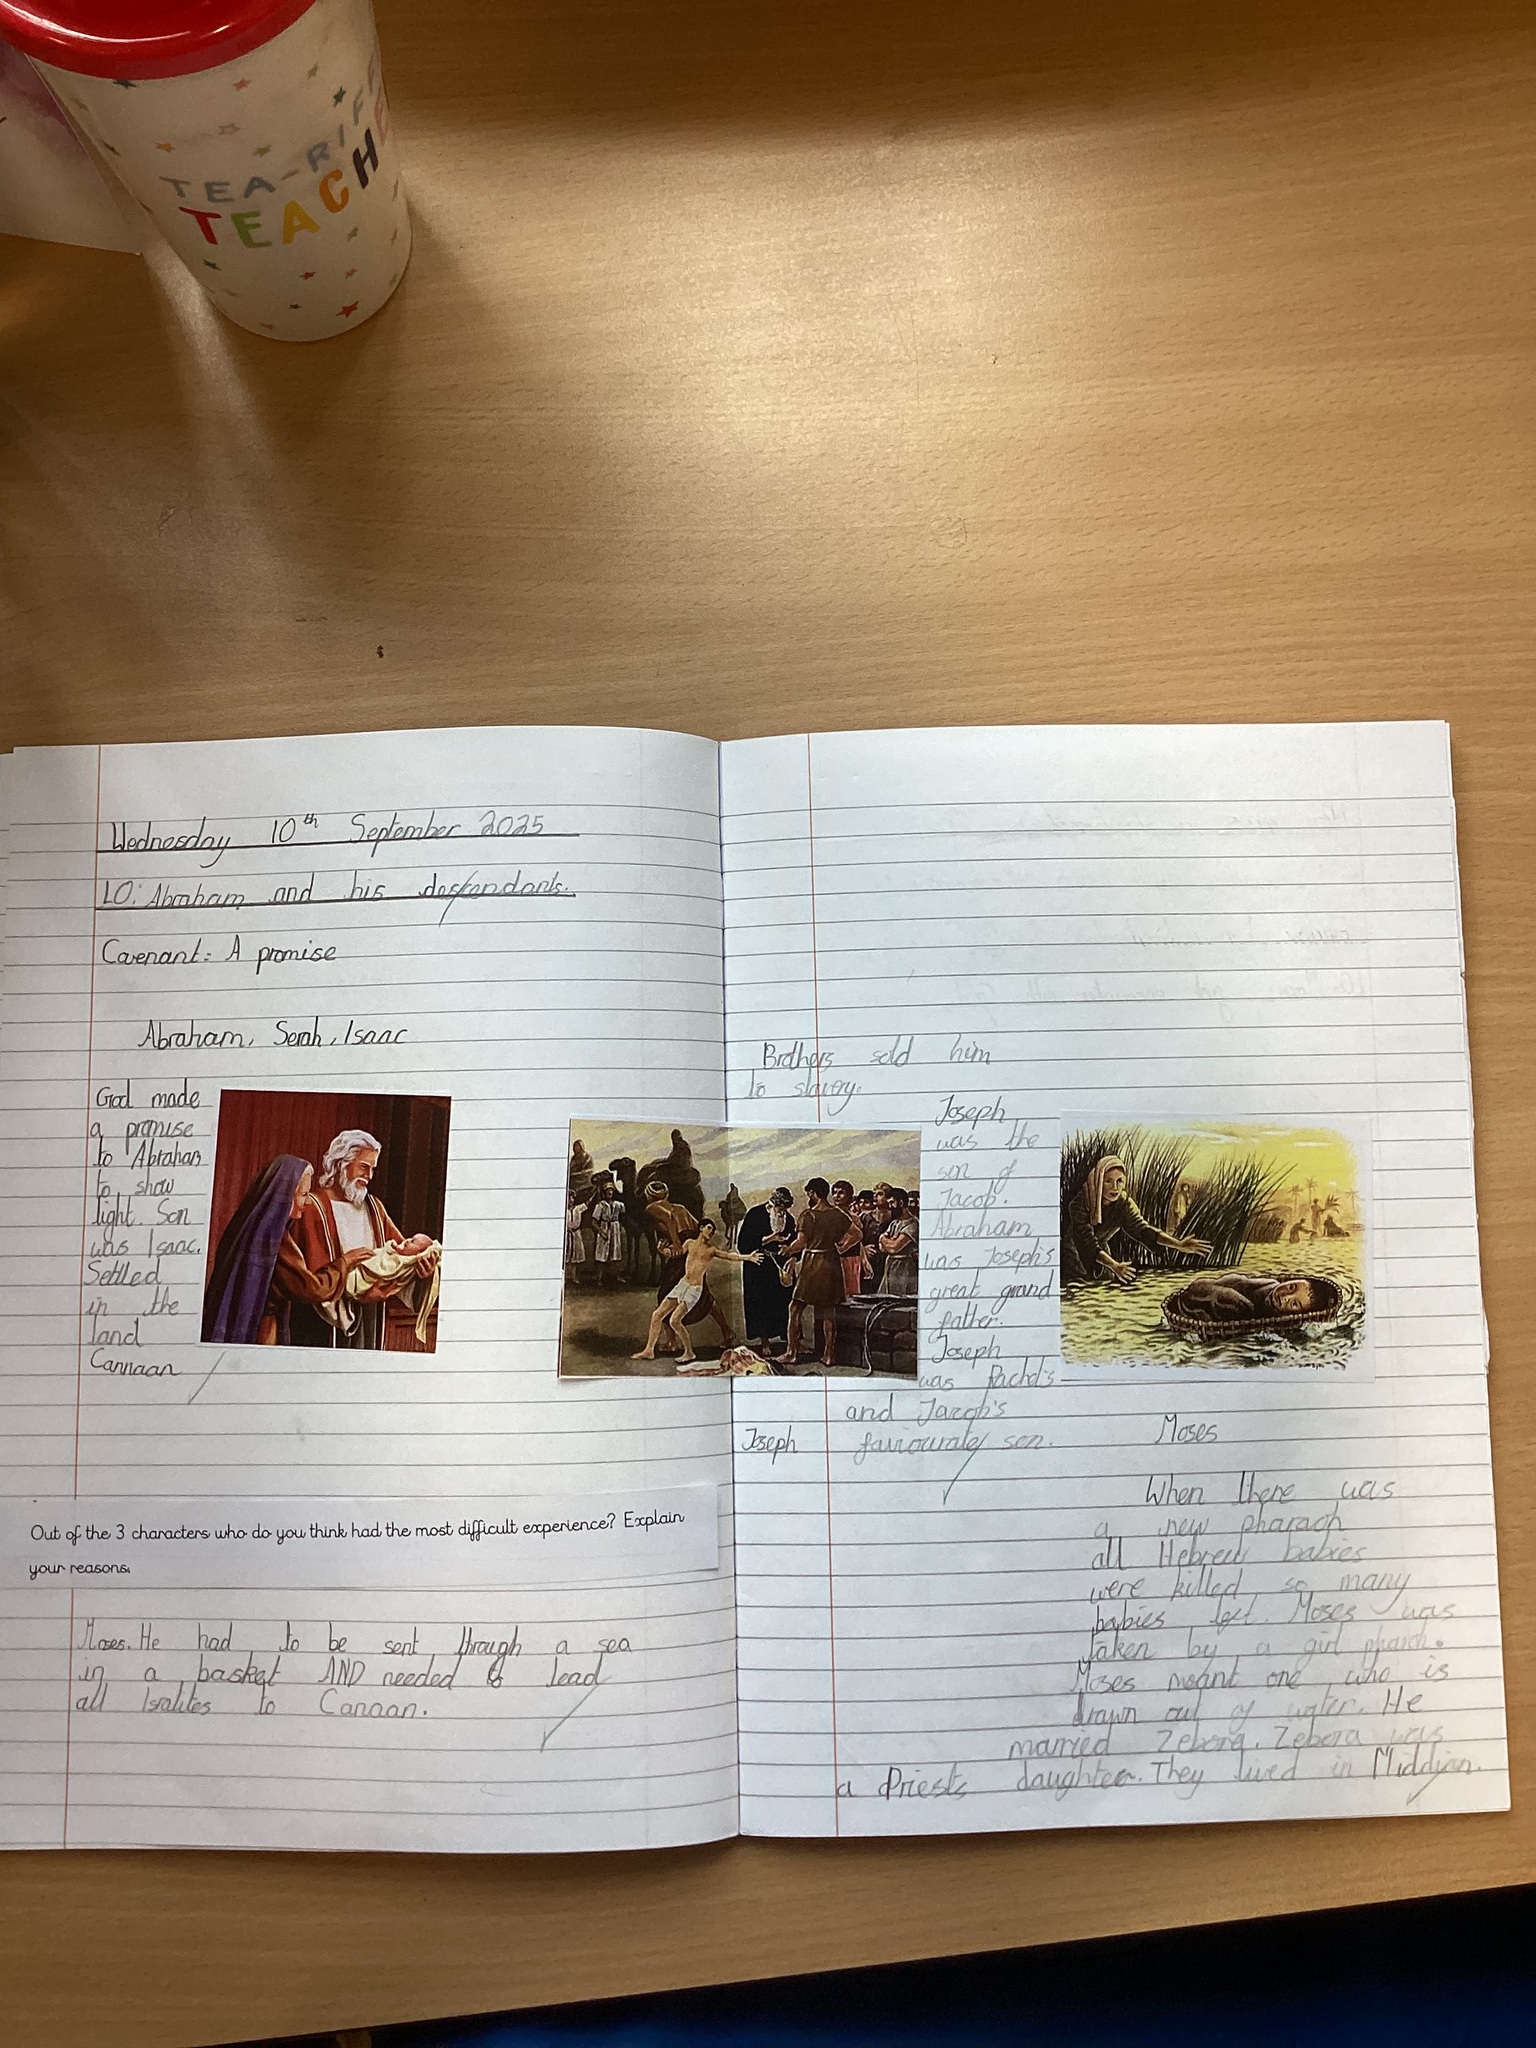 TEA-RIFF
TEACHE
Wednesday 10th September 2025
LO: Abraham and his desfendants.
Covenant: A promise
Abraham, Serah, Isaac
God made
a promise
to Abraham
to show
light. Son
was Isaac.
Settled
in the
land
Cannaan
Out of the 3 characters who do you think had the most difficult experience? Explain
your reasons.
Moses. He had to be sent through a sea
in a basket AND needed to lead
all Isralites to Canaan.
Brothers sold him
to slavery.
Joseph
was the
son of
Jacob.
Abraham
was Joseph's
great grand
father.
Joseph
was Rachel's
and Jacob's
faviourate son.
Joseph
Moses
When there was
a new pharaoh
all Hebrew babies
were killed, so many
babies left. Moses was
taken by a girl pharoh.
Moses meant one who is
drawn out of water. He
married Zebora. Zebora was
a Priests daughter. They lived in Middian.